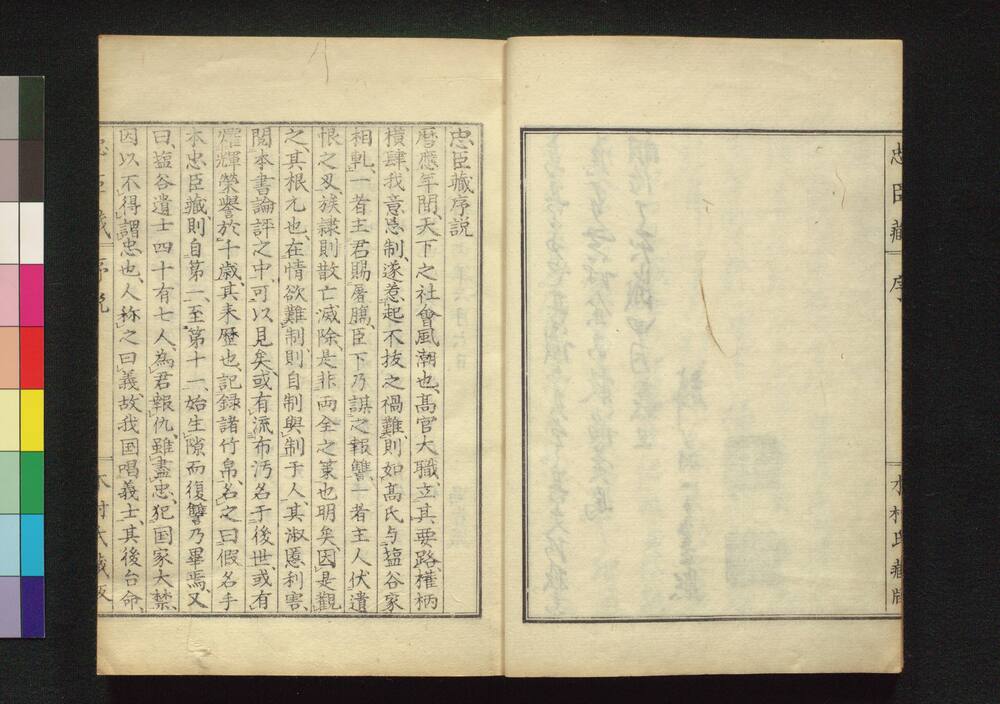 忠臣藏 序
木村氏藏版
忠臣藏序説
曆應年間、天下之社會風潮也、髙官大職、立其要路、權柄
横肆、我意忌制、遂惹起不抜之禍難、則如髙氏与塩谷家
相軋、一者主君賜屠膓、臣下乃謀之報讐、一者主人伏遺
恨之刄、族隷則散亡滅除、是非両全之策也明矣、因是觀
之其根元也、在情欲難制則自制與制于人、其淑慝利害、
閲本書論評之中、可以見矣、或有流布汚名于後世、或有
燿輝榮譽於千歳、其来歴也、記録諸竹帛、名之曰假名手
本忠臣藏、則自第一、至第十一、始生隙而復讐乃畢焉、又
曰、塩谷遺士四十有七人、為君報仇、雖盡忠、犯国家大禁、
因以不得謂忠也、人称之曰義、故我国唱義士、其後台命、
忠臣藏 序説
木村氏藏版